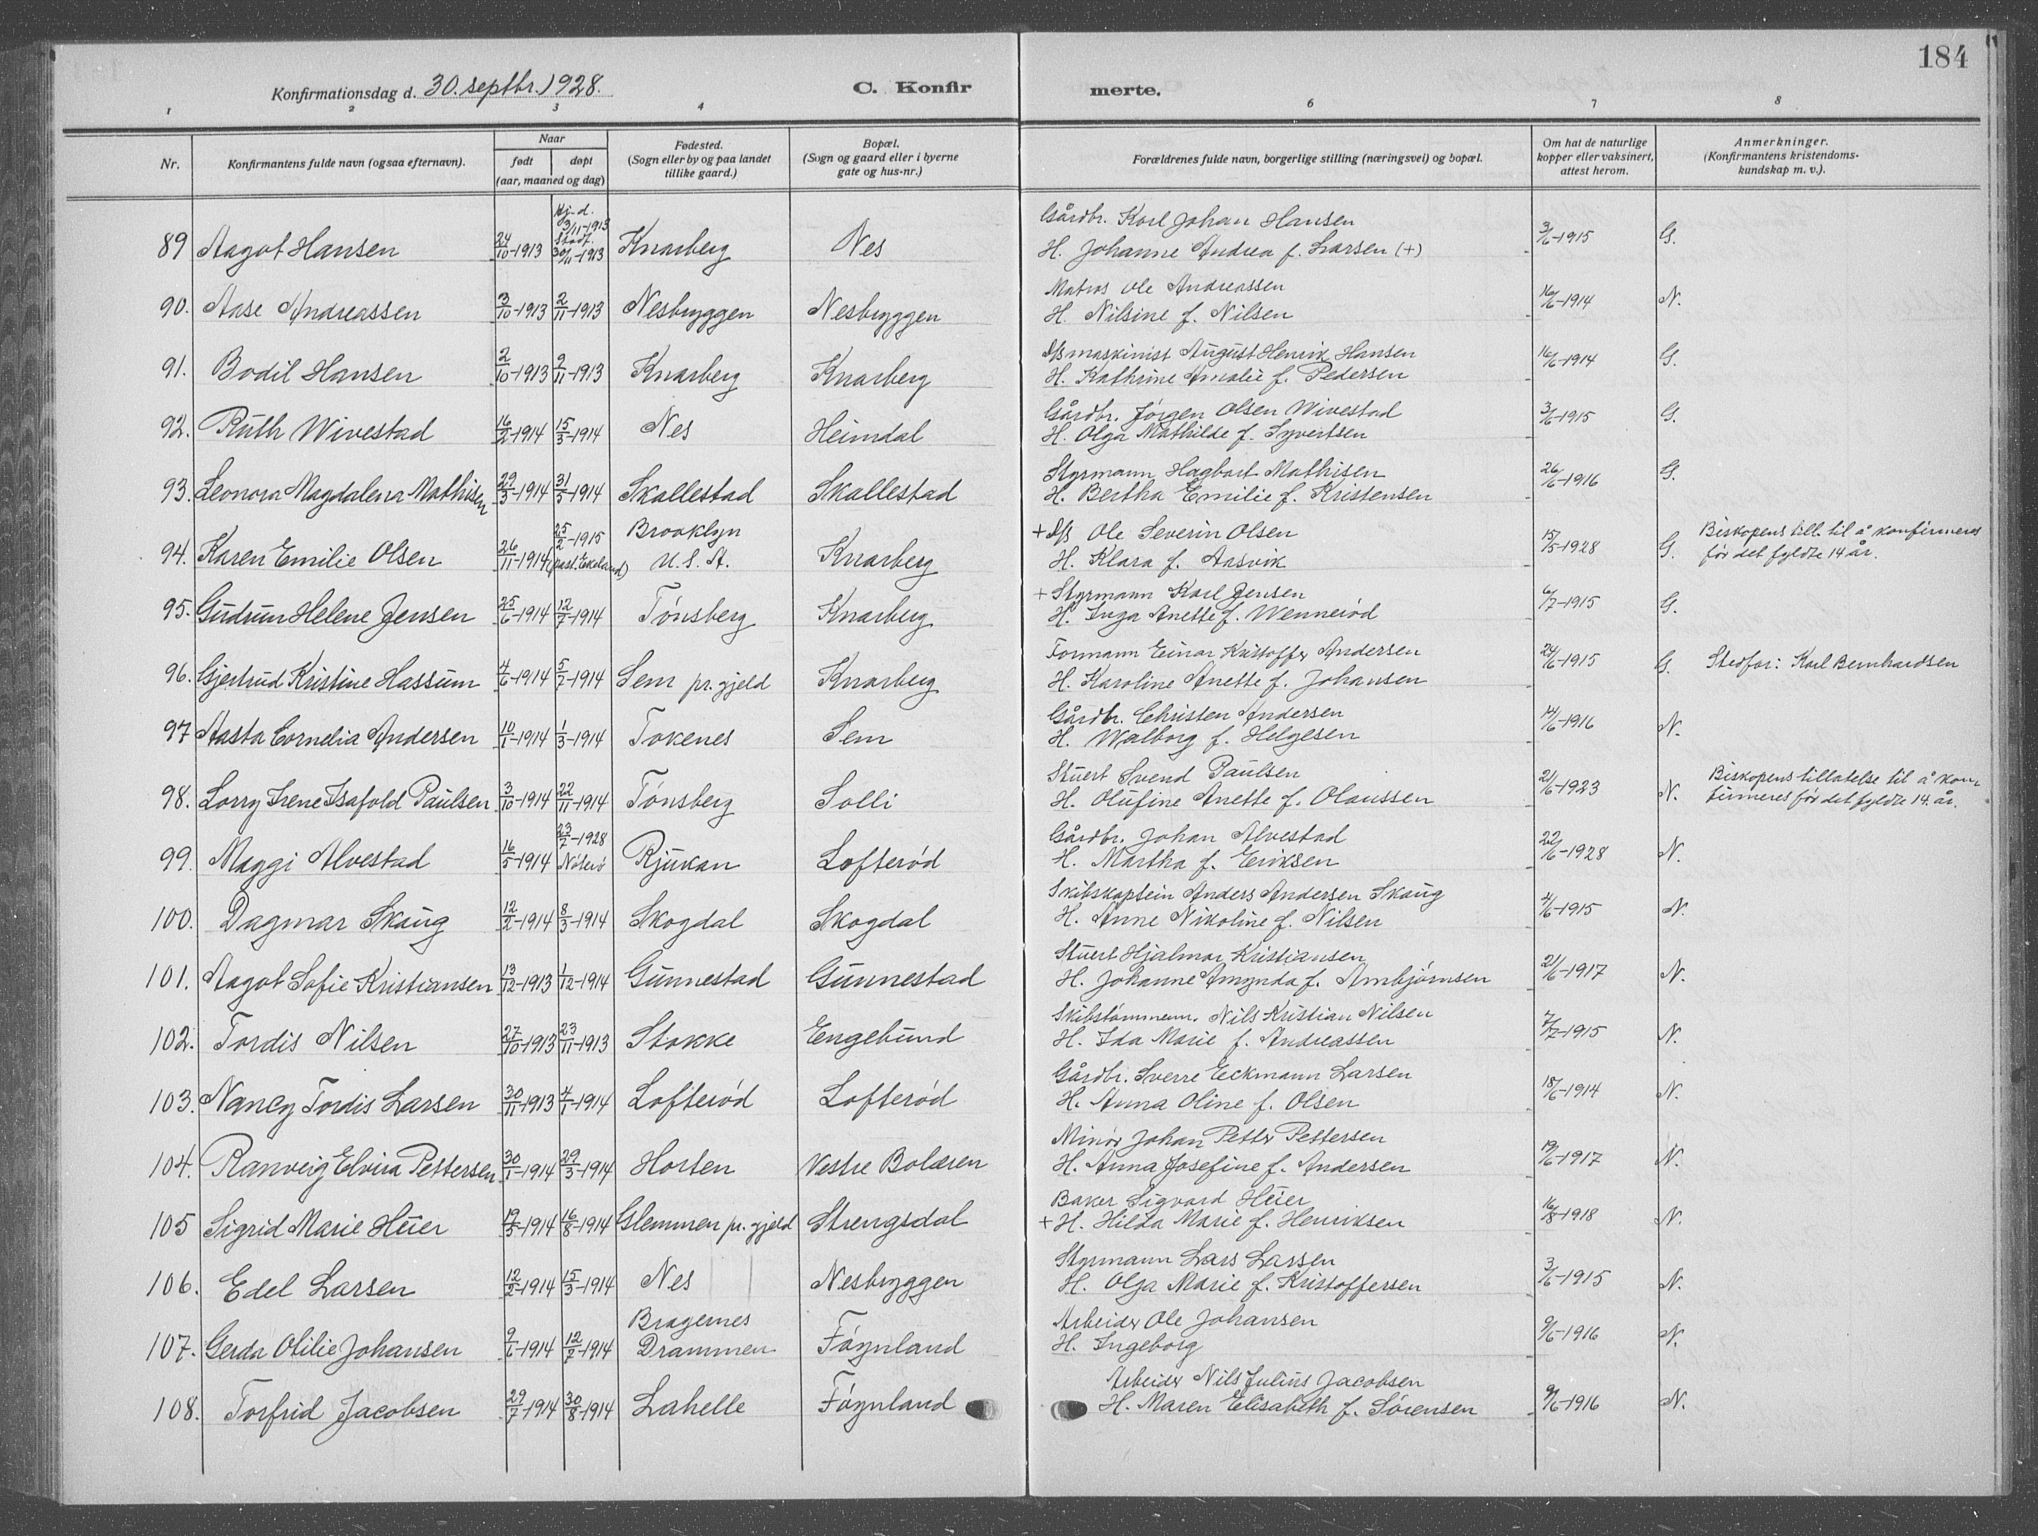 184
Konfirmationsdag d. 30. septbr. 1928. C. Konfirmerte.
1 2 3 4 6 7 8
Nr. | Konfirmantens fulde navn (ogsaa efternavn). | Naar født døpt (aar, maaned og dag) | Fødested. (Sogn eller by og paa landet tillike gaard.) | Bopæl. (Sogn og gaard eller i byerne gate og hus-nr.) | Forældrenes fulde navn, borgerlige stilling (næringsvei) og bopæl. | Om hat de naturlige kopper eller vaksinert, attest herom. | Anmerkninger. (Konfirmantens kristendomskundskap m. v.).
89 Aagot Hansen 24/10-1913 Hj. d. 3/11-1913 Stadf. 30/11-1913 Knarberg Nes Gårdbr. Karl Johan Hansen
H. Johanne Andrea f. Larsen (+) 3/6-1915 G.
90. Aase Andreassen 3/10-1913 2/11-1913 Nesbryggen Nesbryggen Matros Ole Andreassen
H. Nilsine f. Nilsen 16/6-1914 N.
91. Bodil Hansen 2/10-1913 9/11-1913 Knarberg Knarberg D/s maskinist August Henrik Hansen
H. Kathrine Amalie f. Pedersen 16/6-1914 G.
92. Ruth Wivestad 16/2-1914 15/3-1914 Nes Heimdal Gårdbr. Jørgen Olsen Wivestad
H. Olga Mathilde f. Syvertsen 3/6-1915 G.
93. Leonora Magdalena Mathisen 29/3-1914 31/5-1914 Skallestad Skallestad Styrmann Hagbart Mathisen
H. Bertha Emilie f. Kristensen 26/6-1916 G.
94. Karen Emilie Olsen 26/11-1914 25/2-1915 (past. Ekeland) Brooklyn U. S. A. Knarberg + D/s Ole Severin Olsen
H. Klara f. Aasvik 15/5-1928 G. Biskopens till. til å konfirmeres
før det fyldte 14 år.
95. Gudrun Helene Jensen 25/6-1914 12/7-1914 Tønsberg Knarberg + Styrmann Karl Jensen
H. Inga Anette f. Wennerød 6/7-1915 G.
96. Gjertrud Kristine Hassum 4/6-1914 5/7-1914 Sem pr. gjeld Knarberg Formann Einar Kristoffer Andersen
H. Karoline Anette f. Johansen 24/6-1915 G. Stedfar: Karl Bernhardsen
97 Aasta Cornelia Andersen 10/1-1914 1/3-1914 Tokenes Sem Gårdbr. Christen Andersen
H. Walborg f. Helgesen 14/6-1916 N.
98. Lorry Irene Isafold Paulsen 3/10-1914 22/11-1914 Tønsberg Solli Stuert Svend Paulsen
H. Olufine Anette f. Olaussen 21/6-1923 N. Biskopens tillatelse til å kon-
firmeres før det fyldte 14. år.
99. Maggi Alvestad 16/5-1914 23/7-1928 Nøterø Rjukan Lofterød Gårdbr. Johan Alvestad
H. Martha f. Eriksen 22/6-1928 N.
100. Dagmar Skaug 12/2-1914 8/3-1914 Skogdal Skogdal Skibskaptein Anders Andersen Skaug
H. Anne Nikoline f. Nilsen 4/6-1915 N.
101. Aagot Sofie Kristiansen 13/12-1913 1/12-1914 Gunnestad Gunnestad Stuert Hjalmar Kristiansen
H. Johanne Amynda f. Arnbjørnsen 21/6-1917 N.
102. Tordis Nilsen 27/10-1913 23/11-1913 Stokke Engebund Skibstømmerm. Nils Kristian Nilsen
H. Ida Marie f. Andreassen 7/7-1915 N.
103. Nancy Tordis Larsen 30/11-1913 4/1-1914 Lofterød Lofterød Gårdbr. Sverre Eckmann Larsen
H. Anna Oline f. Olsen 18/6-1914 N.
104. Ranveig Elvira Pettersen 30/1-1914 29/3-1914 Horten Vestre Bolæren Minør Johan Petter Pettersen
H. Anna Josefine f. Andersen 19/6-1917 N.
105 Sigrid Marie Heier 19/3-1914 16/8-1914 Glemmen pr. gjeld Strengsdal Baker Sigvard Heier
+ H. Hilda Marie f. Henriksen 16/8-1918 N.
106. Edel Larsen 12/2-1914 15/3-1914 Nes Nesbryggen Styrmann Lars Larsen
H. Olga Marie f. Kristoffersen 3/6-1915 N.
107. Gerda Otilie Johansen 9/6-1914 12/7-1914 Bragernes Drammen Føynland Arbeider Ole Johansen
H. Ingeborg 9/6-1916 N.
108. Torfrid Jacobsen 29/7-1914 30/8-1914 Lahelle Føynland Arbeider Nils Julius Jacobsen
H. Maren Elisabeth f. Sørensen 9/6-1916 N.